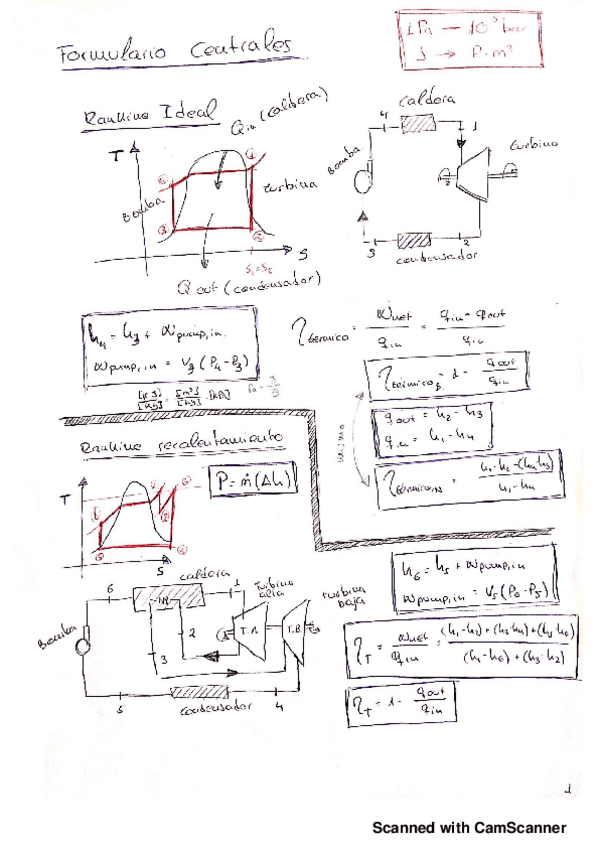 Formulario Centrales
1Pa — 10⁵ bar
J → P·m³
Rankine Ideal
Qin (caldera)
T
Bomba
turbina
S
S₁=S₂
Qout (condensador)
caldera
4
1
Bomba
turbina
3
2
condensador
h₄ = h₃ + Wpump,in.
Wpump,in = V₃ (P₄ - P₃)
ηtermico = Wnet/qin = qin - qout/qin
ηtermico = 1 - qout/qin
qout = h₂ - h₃
qin = h₁ - h₄
mismo
h₁-h₂-(h₄-h₃)/h₁-h₄
Rankine recalentamiento
P = ṁ(Δh)
T
S
6
caldera
1
turbina
alta
turbina
baja
Bomba
2
T.A.
T.B
3
5
condensador
4
h₆ = h₅ + Wpump,in
Wpump,in = V₅ (P₆ - P₅)
ηT = Wnet/qin = (h₁-h₂)+(h₃-h₄)+(h₅-h₆)/(h₁-h₆)+(h₃-h₂)
ηT = 1 - qout/qin
1
Scanned with CamScanner